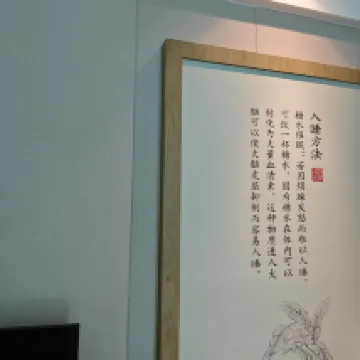 入睡方法
糖水催眠:若因烦躁发怒而难以入睡,
可饮一杯糖水。因为糖水在体内可以
转化为大量血清素,这种物质进入大
脑可以使大脑皮层抑制而容易入睡。